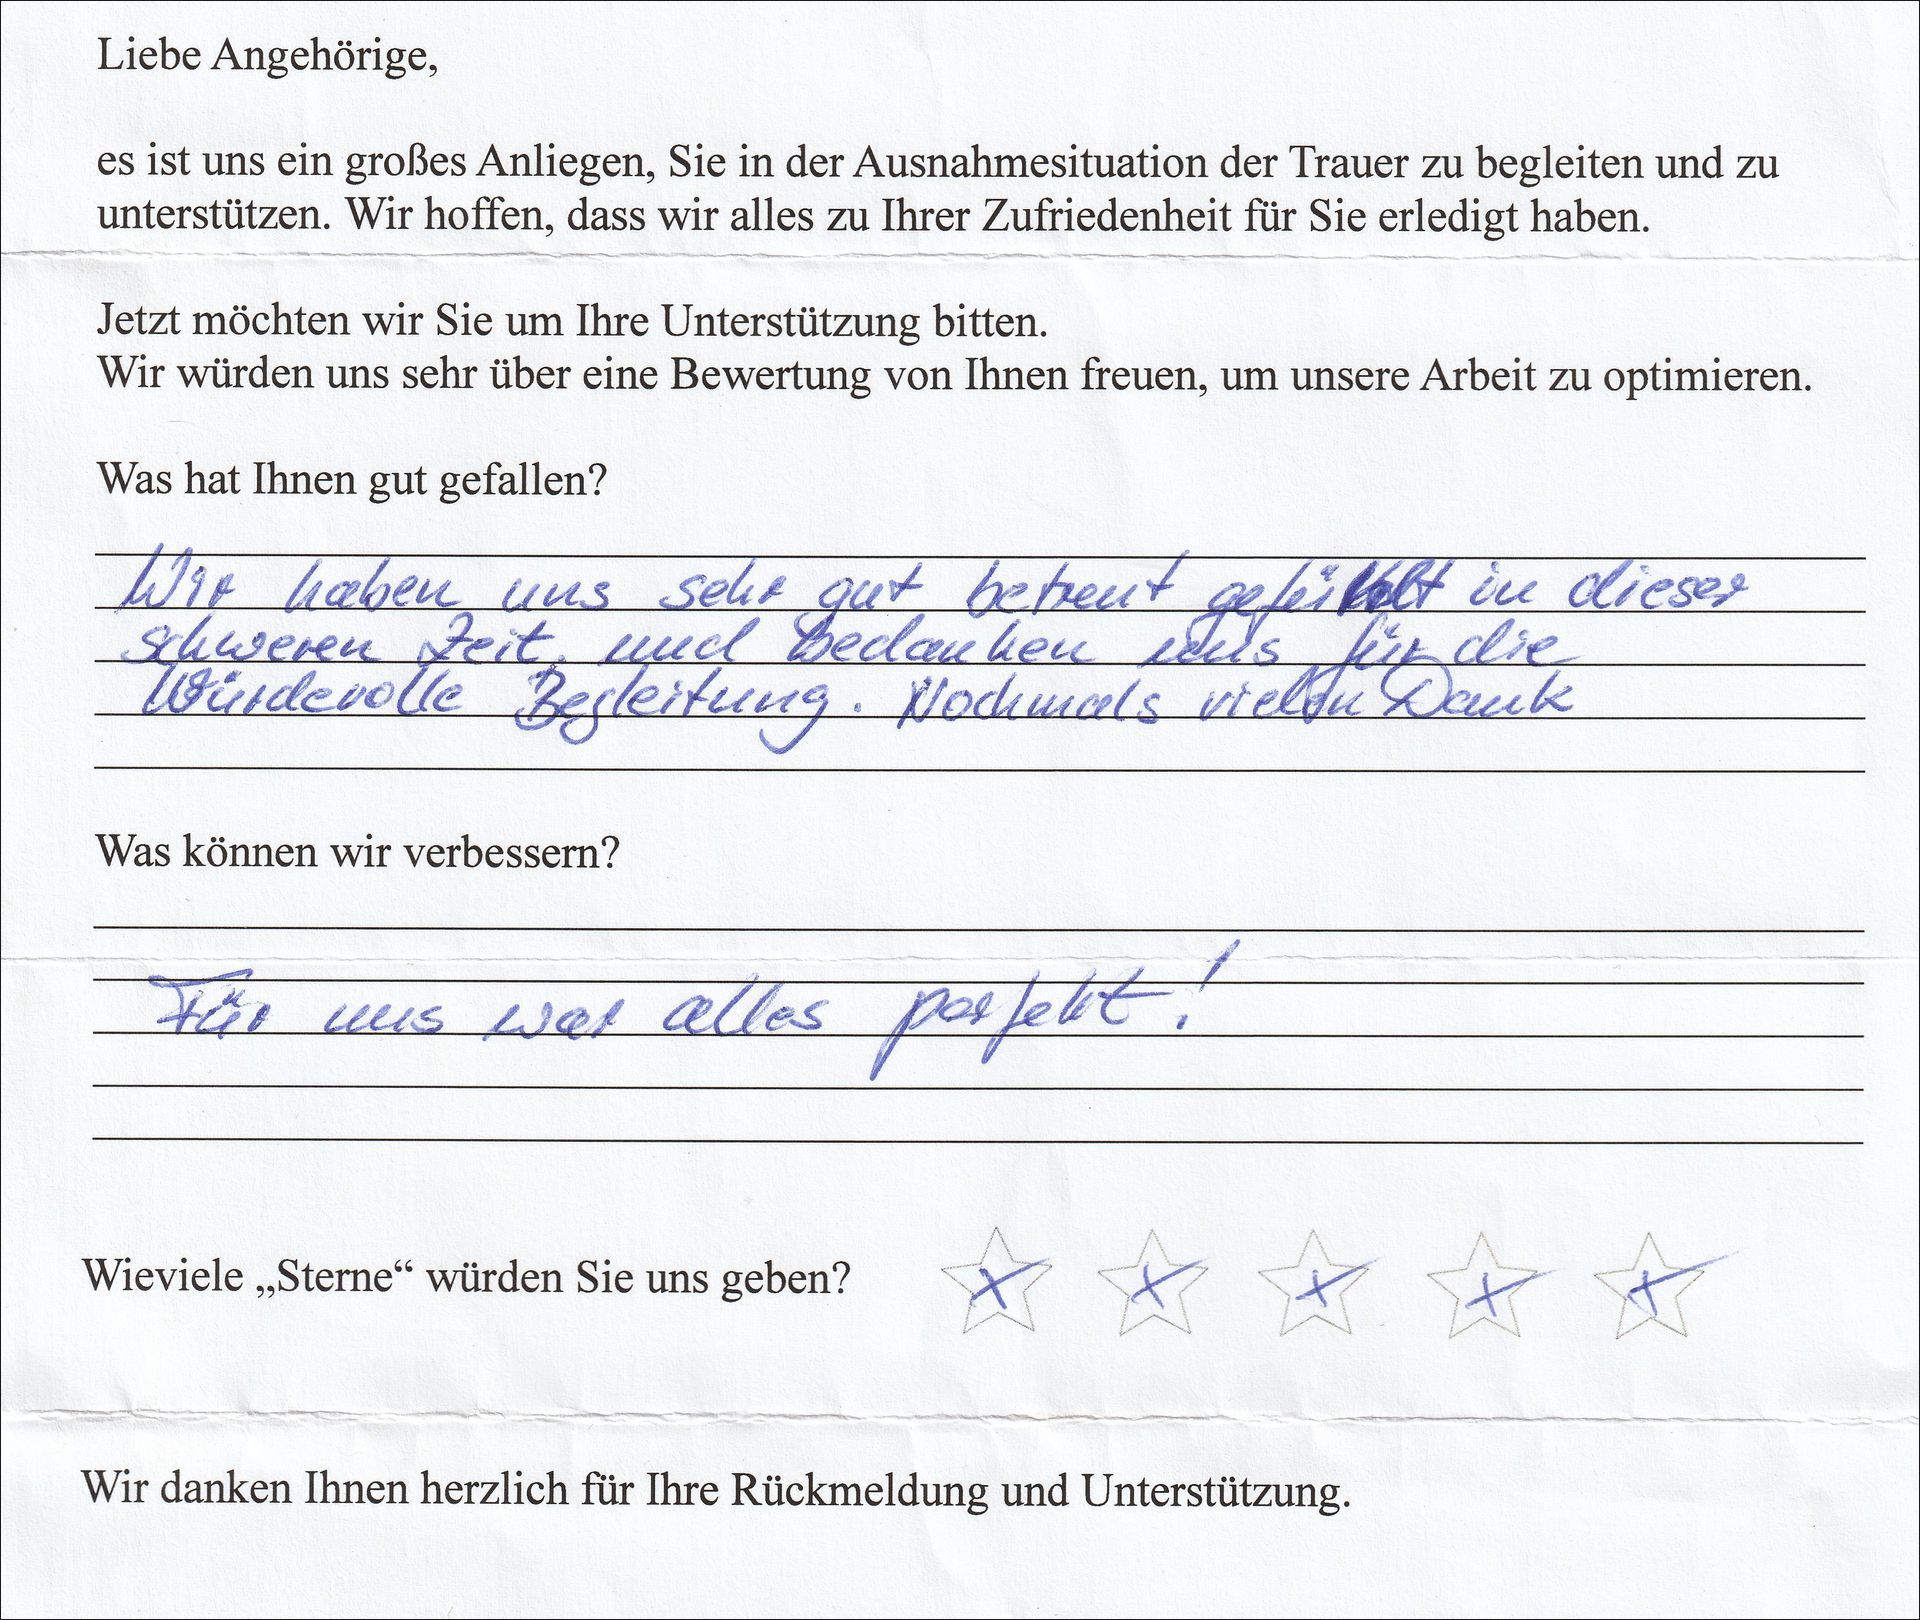 Liebe Angehörige,
es ist uns ein großes Anliegen, Sie in der Ausnahmesituation der Trauer zu begleiten und zu
unterstützen. Wir hoffen, dass wir alles zu Ihrer Zufriedenheit für Sie erledigt haben.
Jetzt möchten wir Sie um Ihre Unterstützung bitten.
Wir würden uns sehr über eine Bewertung von Ihnen freuen, um unsere Arbeit zu optimieren.
Was hat Ihnen gut gefallen?
Wir haben uns sehr gut betreut gefühlt in dieser
schweren Zeit, und bedanken uns für die
Würdevolle Begleitung. Nochmals vielen Dank
Was können wir verbessern?
Für uns war alles perfekt!
Wieviele „Sterne“ würden Sie uns geben?
Wir danken Ihnen herzlich für Ihre Rückmeldung und Unterstützung.